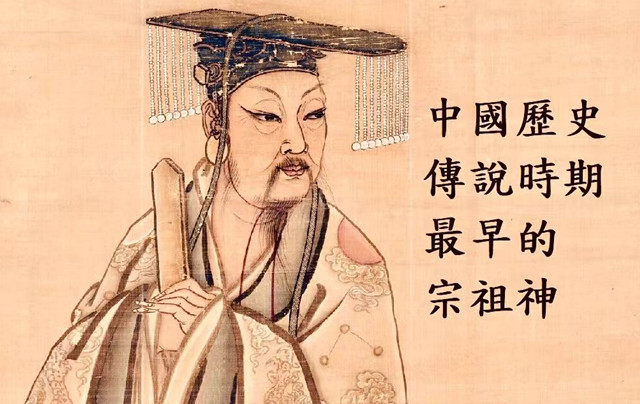 中國歷史
傳說時期
最早的
宗祖神